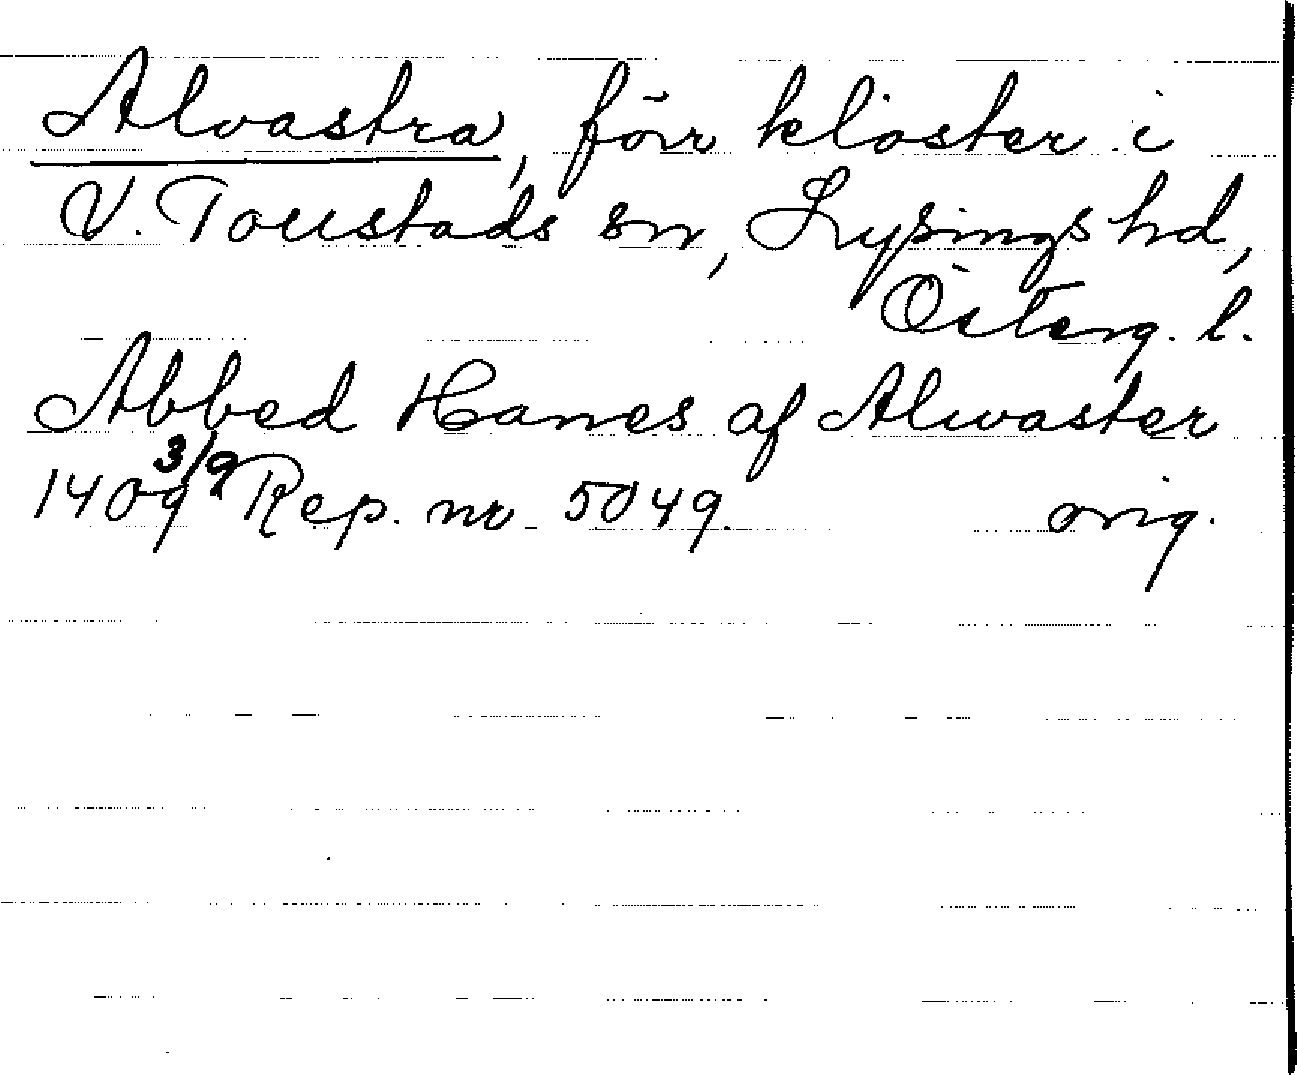 Alvastra, förr kloster i
V. Tollstads sn, Lysings hd,
Österg. l.
Abbed Hanes af Alwaster
1409 3/9 Rep. nr. 5049. orig.